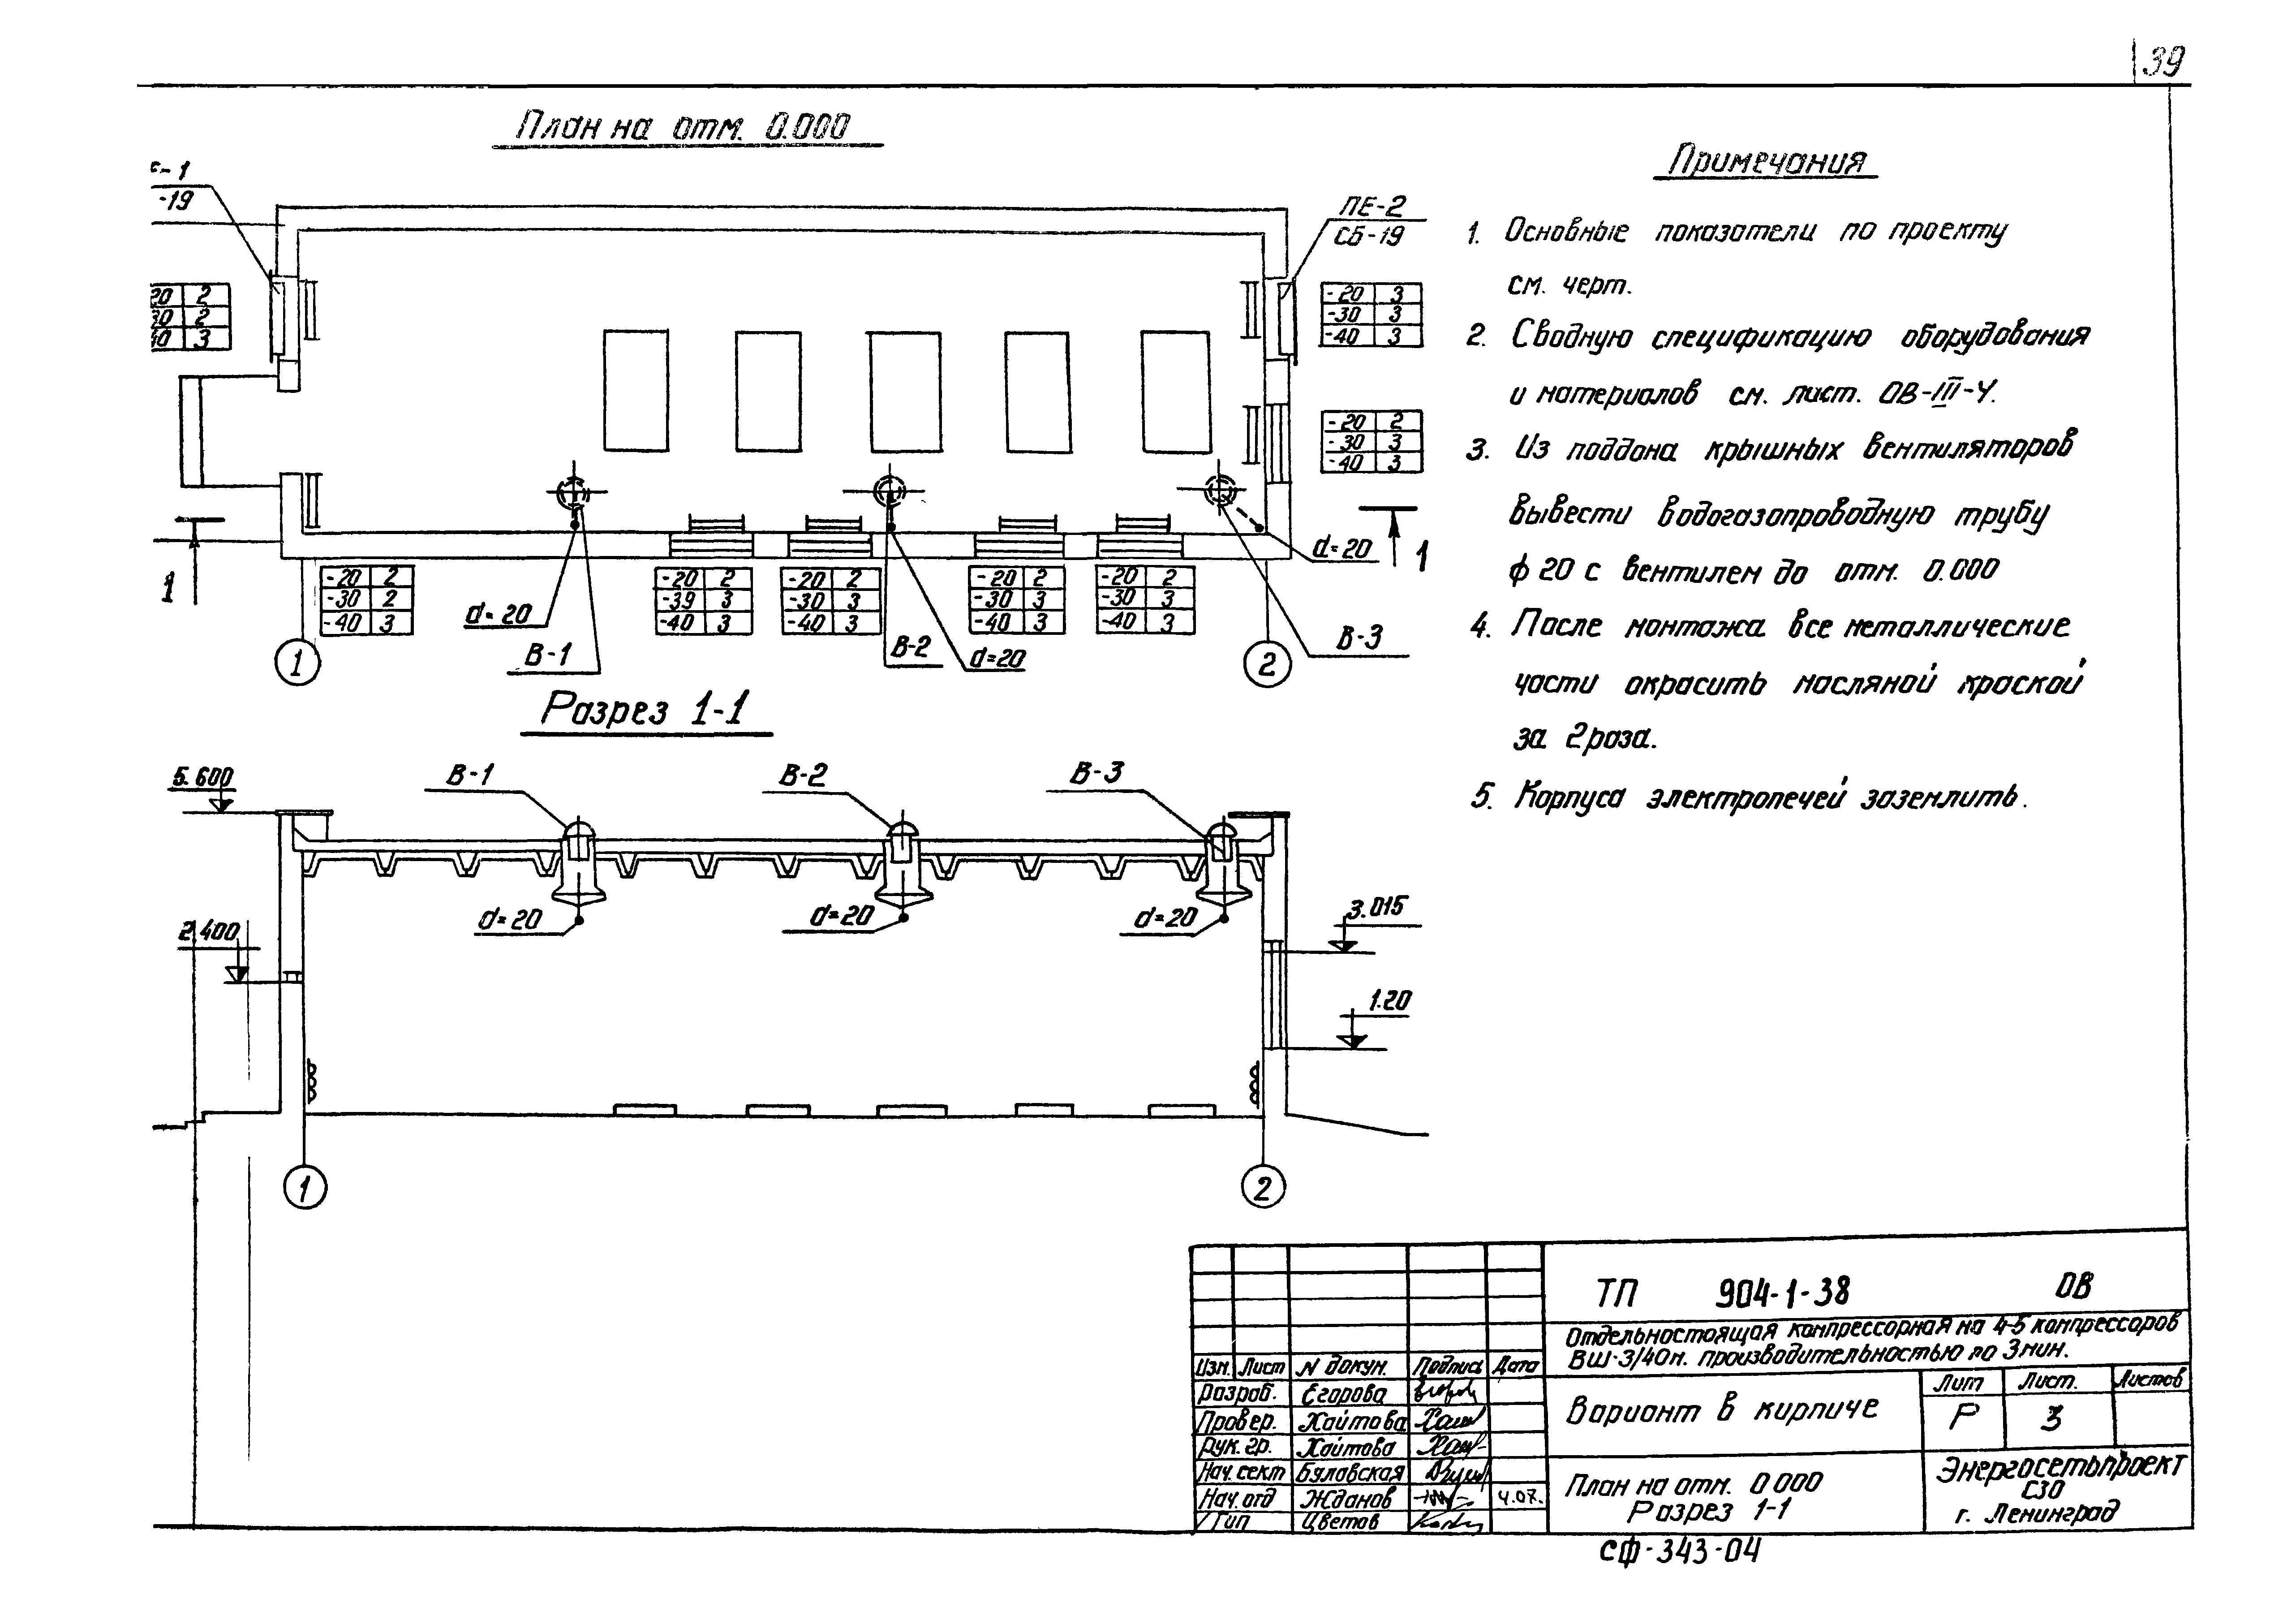 39
План на отм. 0.000
-1
-19
20 2
30 2
40 3
ПЕ-2
СБ-19
-20 3
-30 3
-40 3
-20 2
-30 3
-40 3
1
1
d=20
-20 2
-30 2
-40 3
d=20
В-1
-20 2
-39 3
-40 3
-20 2
-30 3
-40 3
В-2
d=20
-20 2
-30 3
-40 3
-20 2
-30 3
-40 3
В-3
1
2
Разрез 1-1
5.600
В-1
В-2
В-3
d=20
d=20
d=20
2.400
3.015
1.20
1
2
Примечания
1. Основные показатели по проекту
см. черт.
2. Сводную спецификацию оборудования
и материалов см. лист. ОВ-III-4.
3. Из поддона крышных вентиляторов
вывести водогазопроводную трубу
ф 20 с вентилем до отм. 0.000
4. После монтажа все металлические
части окрасить масляной краской
за 2 раза.
5. Корпуса электропечей заземлить.
ТП 904-1-38 ОВ
Отдельностоящая компрессорная на 4-5 компрессоров
ВШ-3/40м. производительностью по 3мин.
Изм. Лист N докум. Подпись Дата
Разраб. Егорова
Провер. Хаитова
Рук. гр. Хаитова
Нач. сект Булавская
Нач. отд Жданов 4.07.
Гип Цветов
Вариант в кирпиче
Лит Лист. Листов
Р 3
План на отм. 0 000
Разрез 1-1
Энергосетьпроект
СЗО
г. Ленинград
СФ-343-04